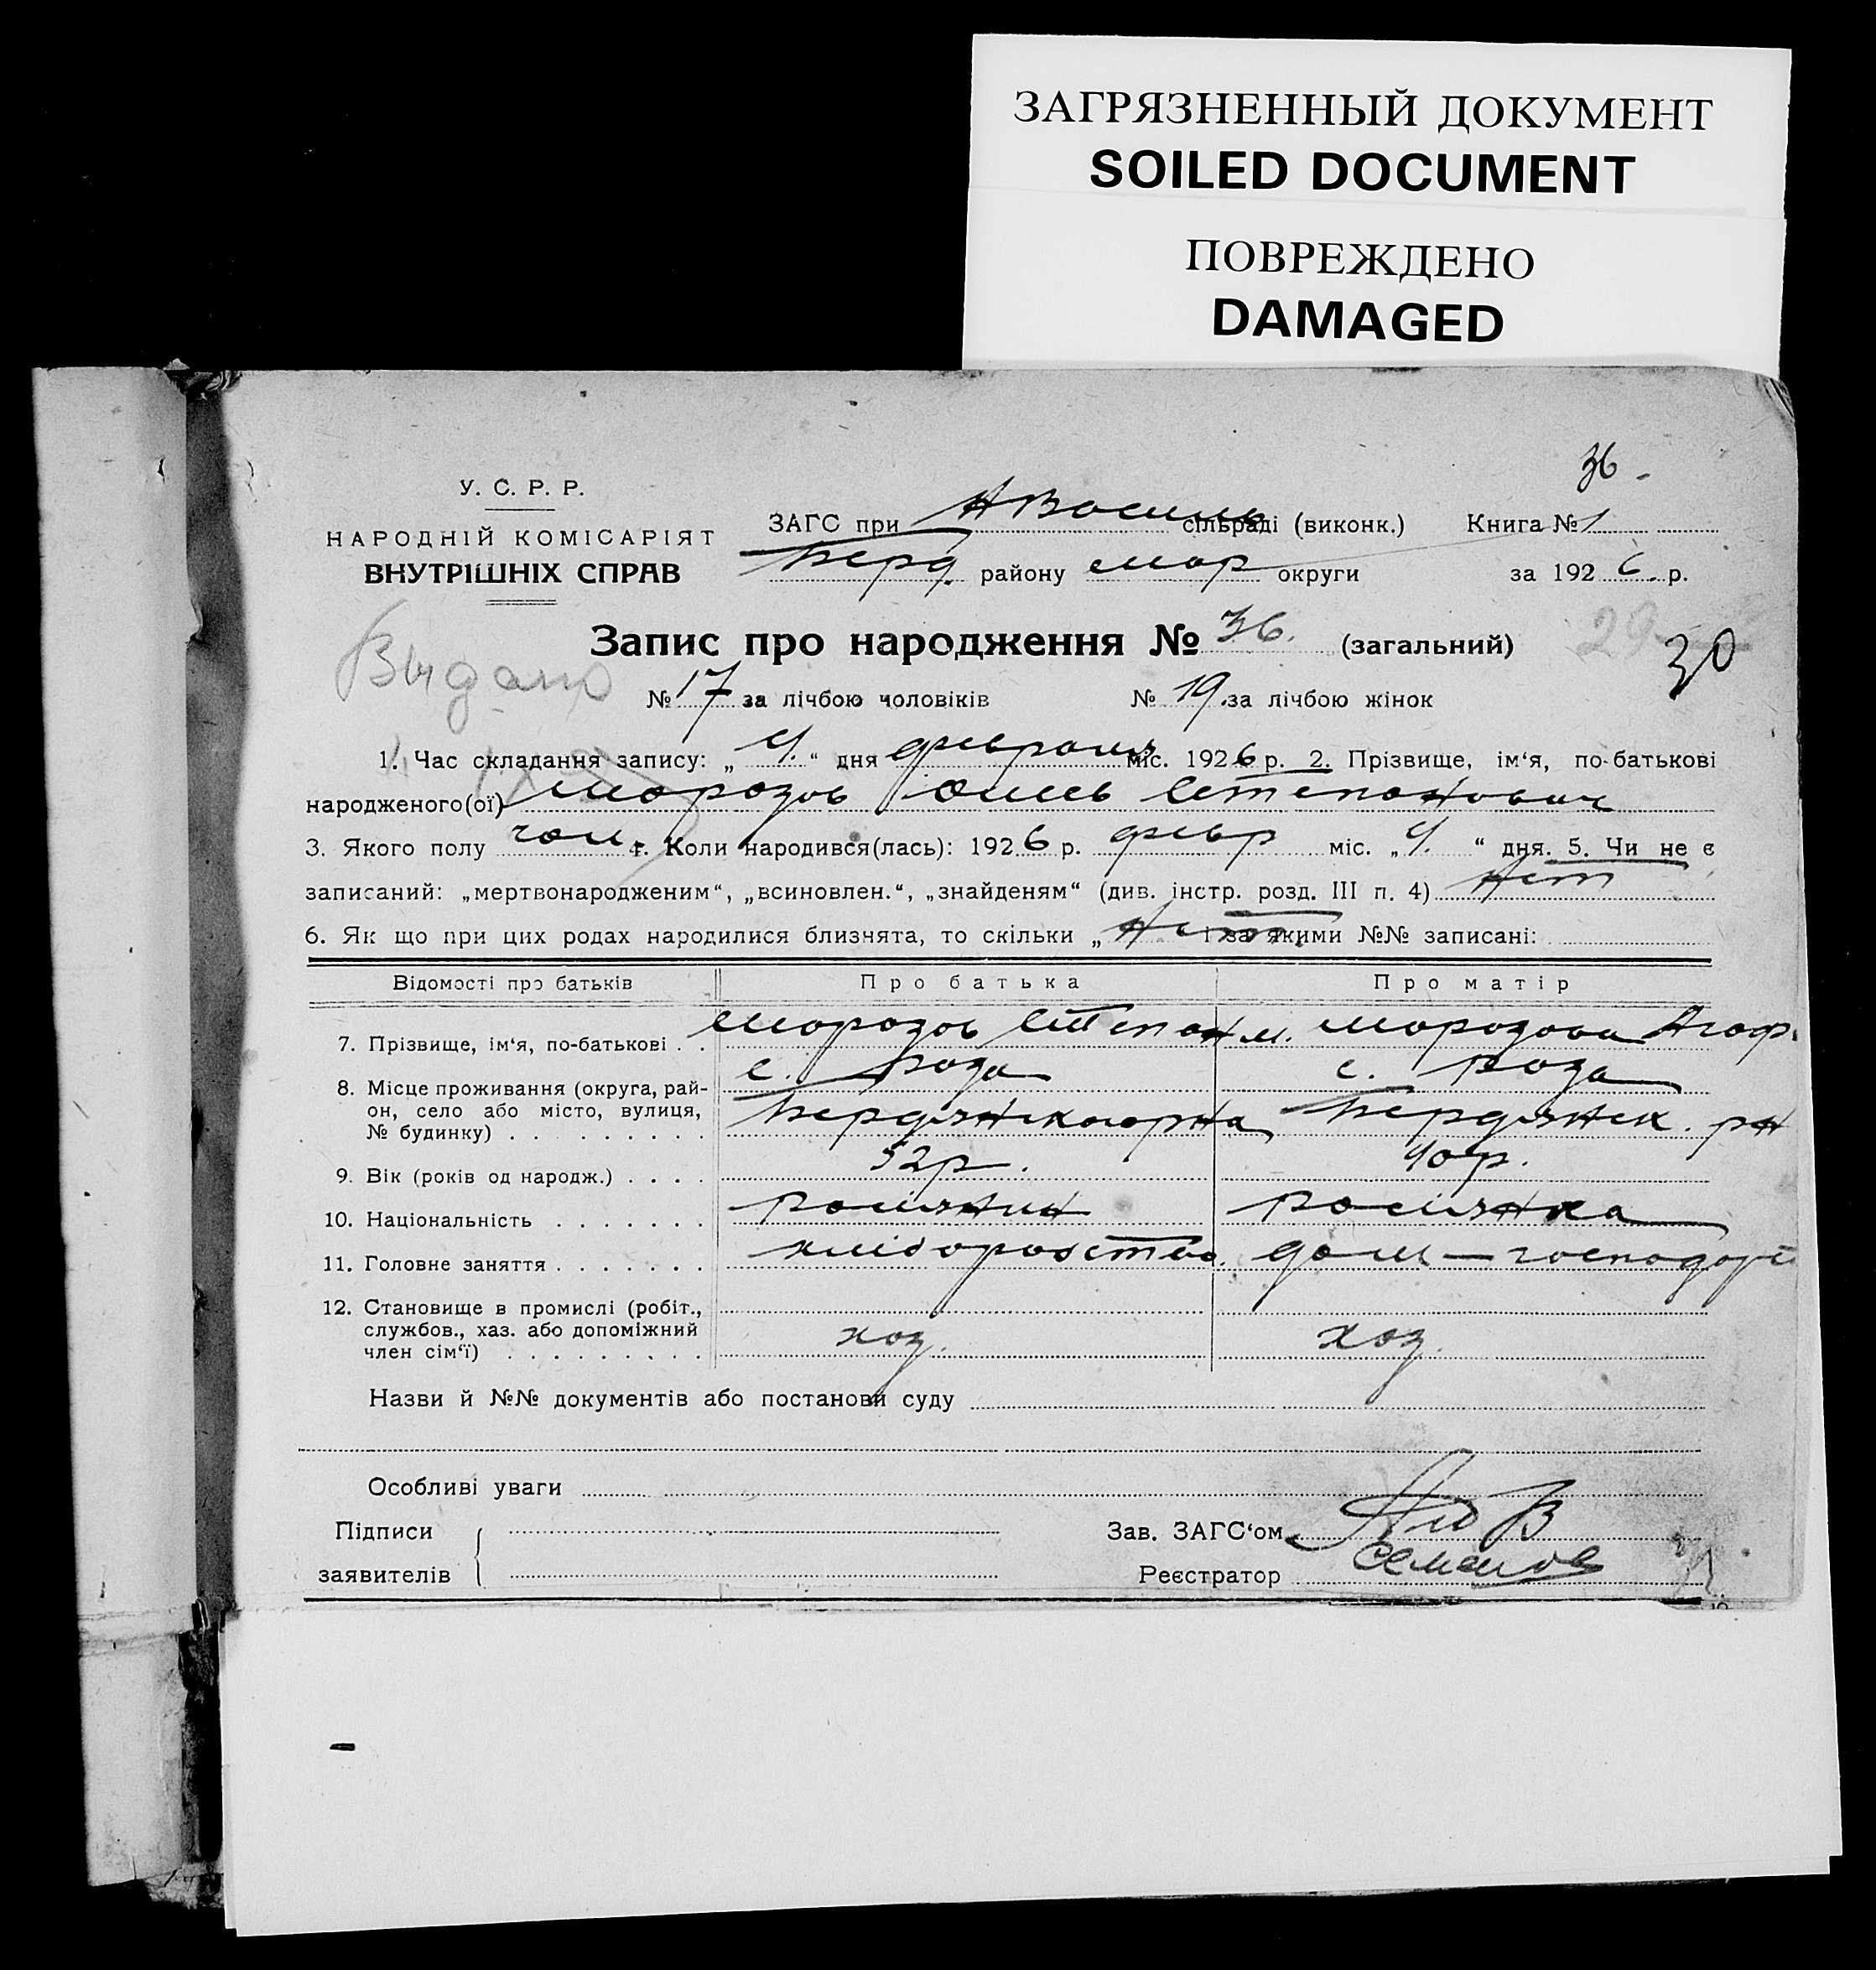 ЗАГРЯЗНЕННЫЙ ДОКУМЕНТ
SOILED DOCUMENT
ПОВРЕЖДЕНО
DAMAGED
36.
У. С. Р. Р.
НАРОДНІЙ КОМІСАРІЯТ
ВНУТРІШНІХ СПРАВ
ЗАГС при сільраді (виконк.) Книга № 1
Берд. району мар округи за 1926 р.
Выдано
Запис про народження № 36. (загальний) 29 30
№ 17 за лічбою чоловіків № 19 за лічбою жінок
1. Час складання запису: „4.“ дня февраля міс. 1926 р. 2. Прізвище, ім‘я, по-батькові
народженого(ої) Морозов Степанович
3. Якого полу чол. 4. Коли народився(лась): 1926 р. февр міс. „4.“ дня. 5. Чи не є
записаний: „мертвонародженим“, „всиновлен.“, „знайденям“ (див. інстр. розд. III п. 4) Нет
6. Як що при цих родах народилися близнята, то скільки „ Нет і за якими №№ записані:
Відомості про батьків Про батька Про матір
7. Прізвище, ім‘я, по-батькові . . Морозов Степан м. Морозова Агаф.
8. Місце проживання (округа, рай- с. Роза с. Роза
он, село або місто, вулиця, Бердянского рна Бердянск. рн
№ будинку) . . . . . . . . .
9. Вік (років од народж.) . . . . 52р. 40р.
10. Національність . . . . . . . росіянин росіянка
11. Головне заняття . . . . . . . хліборобство. дом — господар
12. Становище в промислі (робіт.,
службов., хаз. або допоміжний хоз. хоз.
член сім‘ї) . . . . . . . . .
Назви й №№ документів або постанови суду
Особливі уваги
Підписи Зав. ЗАГС‘ом
заявителів Реєстратор